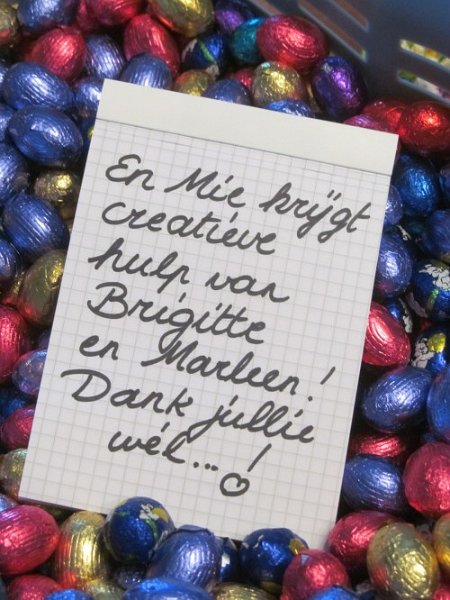 En Mie krijgt
creatieve
hulp van
Brigitte
en Marleen!
Dank jullie
wél...!